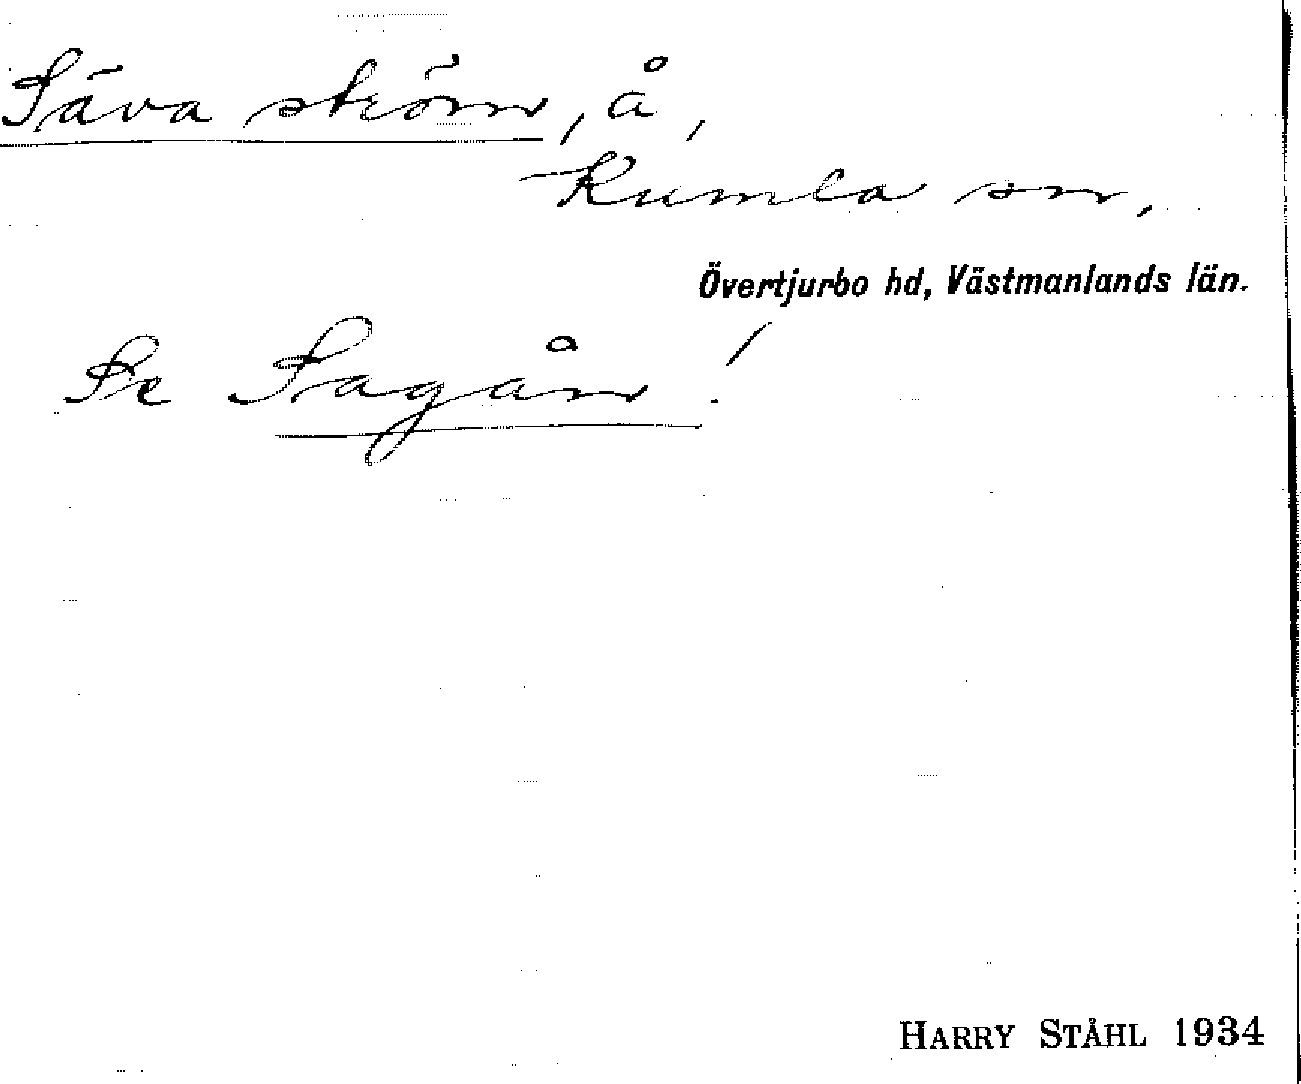 Säva ström, å,
Kumla sn,
Övertjurbo hd, Västmanlands län.
Se Sagån!
HARRY STÅHL 1934